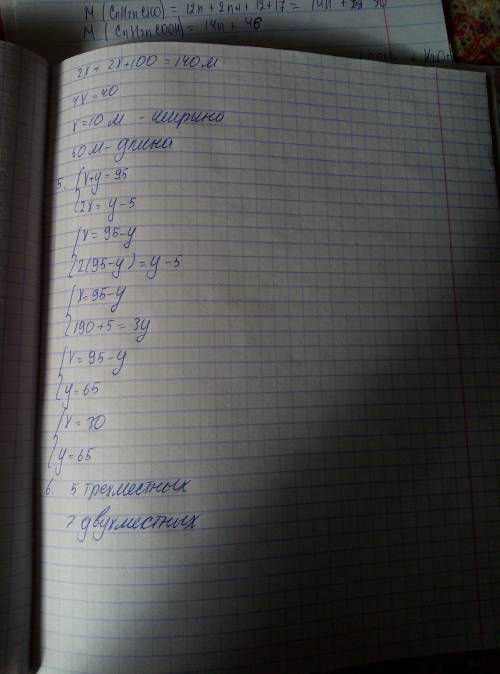 M (CnH2nCHO) = 12n + 2n + 12 + 17 = 14n +
M (CnH2nCOOH) = 14n + 46
2x + 2x + 100 = 140 м
4x = 40
x = 10 м - ширина
60 м - длина
5. { x + y = 95
{ 2x = y - 5
{ x = 95 - y
{ 2(95 - y) = y - 5
{ x = 95 - y
{ 190 + 5 = 3y
{ x = 95 - y
{ y = 65
{ x = 30
{ y = 65
6. 5 трехместных
7 двухместных